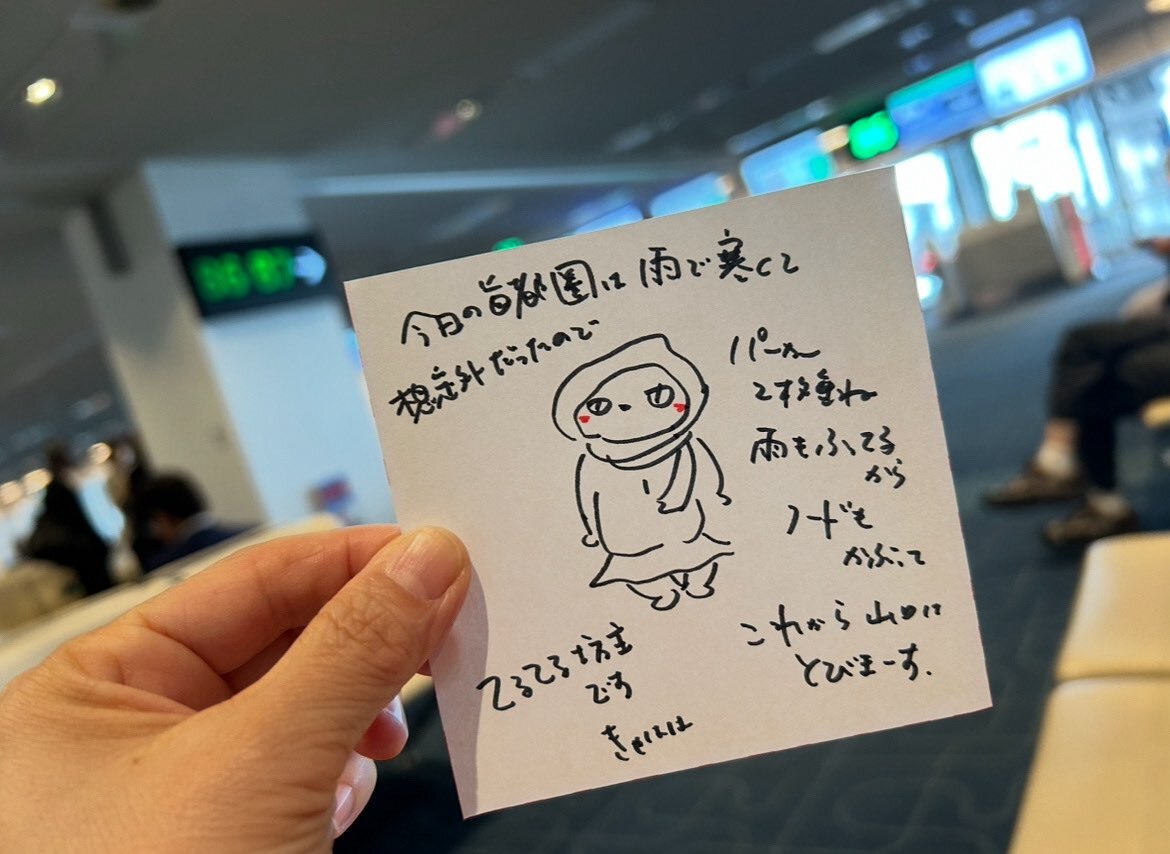 今日の首都圏は雨で寒くて
想定外だったので
パーカー
2枚重ね
雨もふってる
から
フードも
かぶって
てるてる坊主
です
きゃはは
これから山口に
とびまーす.